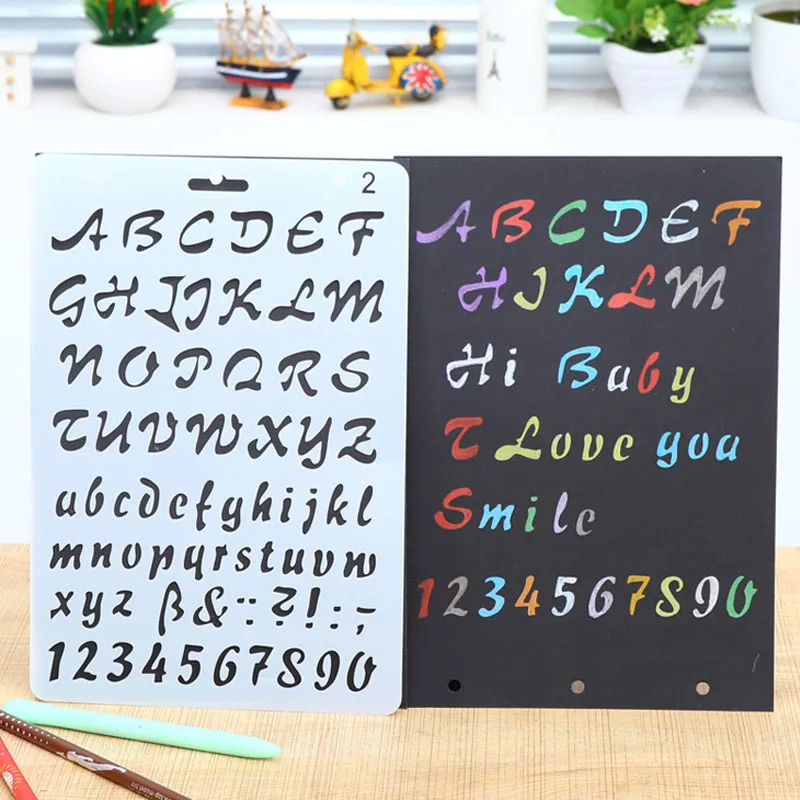 2
ABCDEF
GHIJKLM
NOPQRS
TUVWXYZ
abcdefghijkl
mnopqrstuvw
xyz ß&:;?!:;-
1234567890
ABCDEF
HJKLM
Hi Baby
T Love you
Smile
1234567890